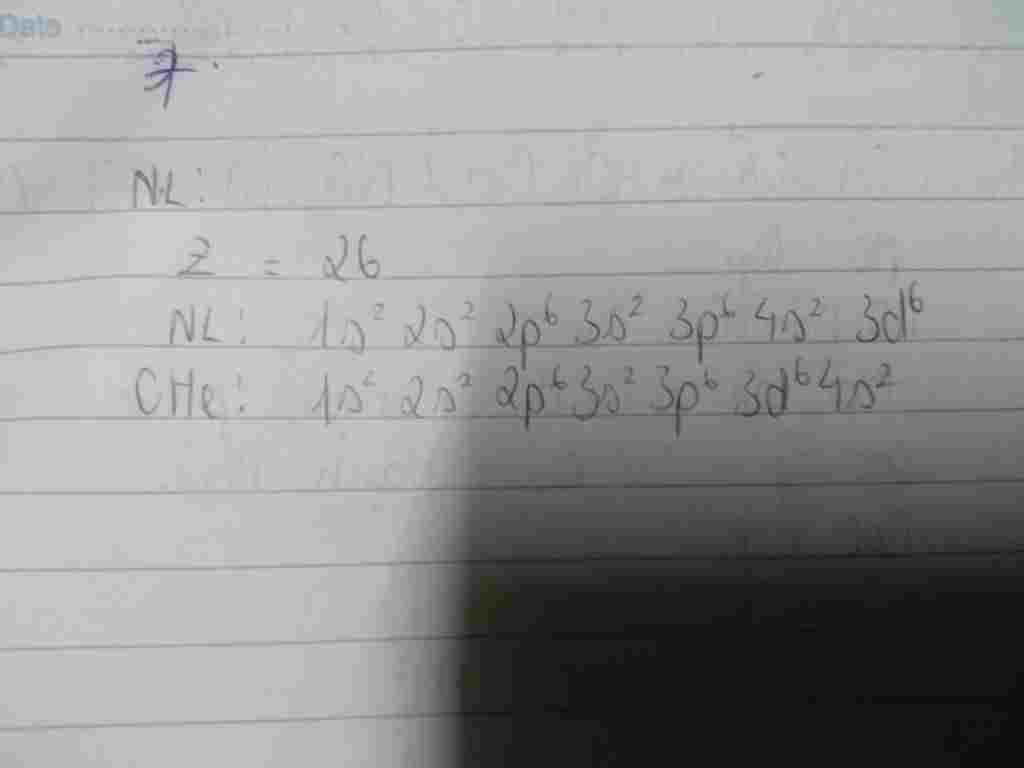 Date
7.
NL:
Z = 26
NL: 1s² 2s² 2p⁶ 3s² 3p⁶ 4s² 3d⁶
CHe: 1s² 2s² 2p⁶ 3s² 3p⁶ 3d⁶ 4s²